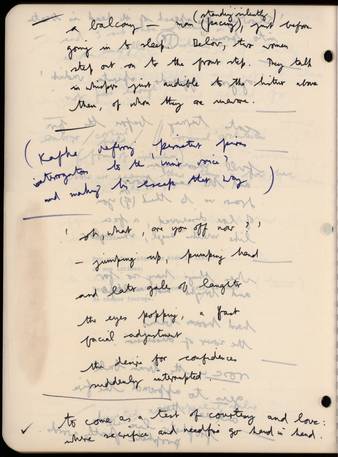 (standing silently)
a balcony – man (pacing), just before
going in to sleep. Below, two women
step out on to the front step. They talk
in whispers just audible to the listener above
them, of whom they are unaware.
(Kafka
interrogation to the 'inner voice'
and making his escape that way)
'oh, what, are you off now?'
– jumping up, pumping hand
and later gales of laughter
the eyes popping, a fast
facial adjustment
the desire for confidences
suddenly interrupted.
to come as a test of courtesy and love:
where sacrifice and need go hand in hand.